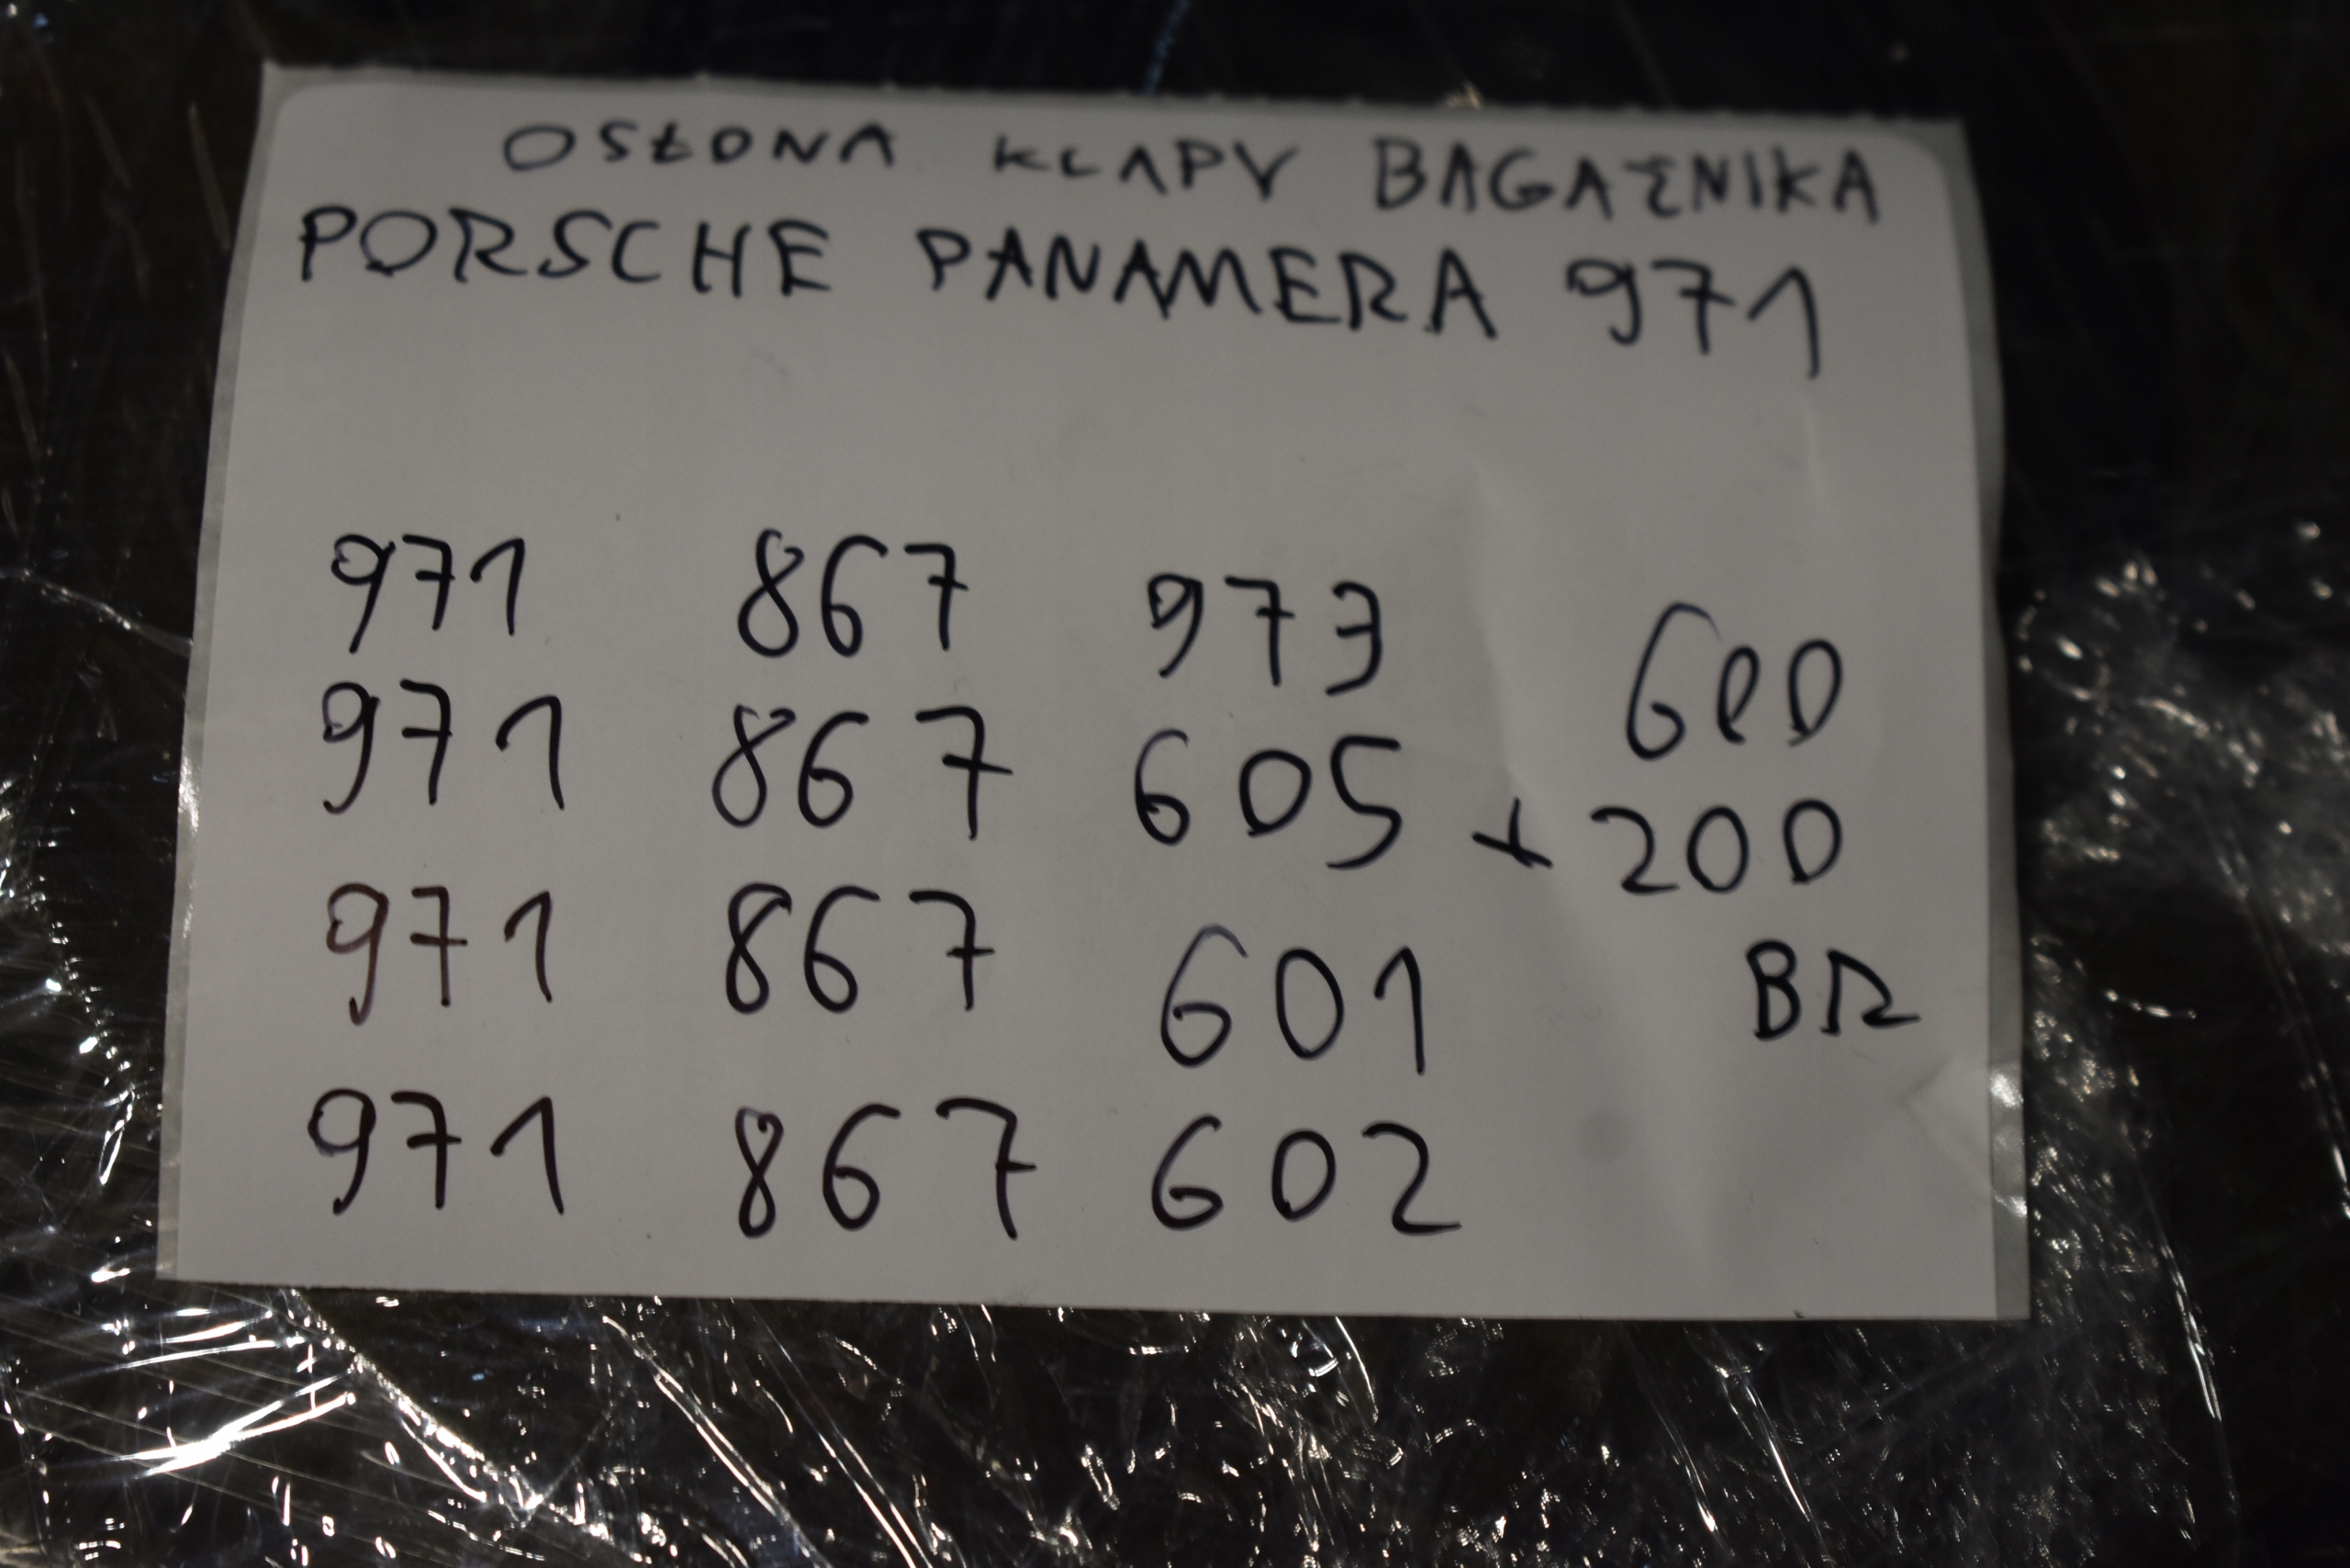 OSŁONA KLAPY BAGAŻNIKA
PORSCHE PANAMERA 971
971 867 973 600
971 867 605 + 200
971 867 601 BR
971 867 602